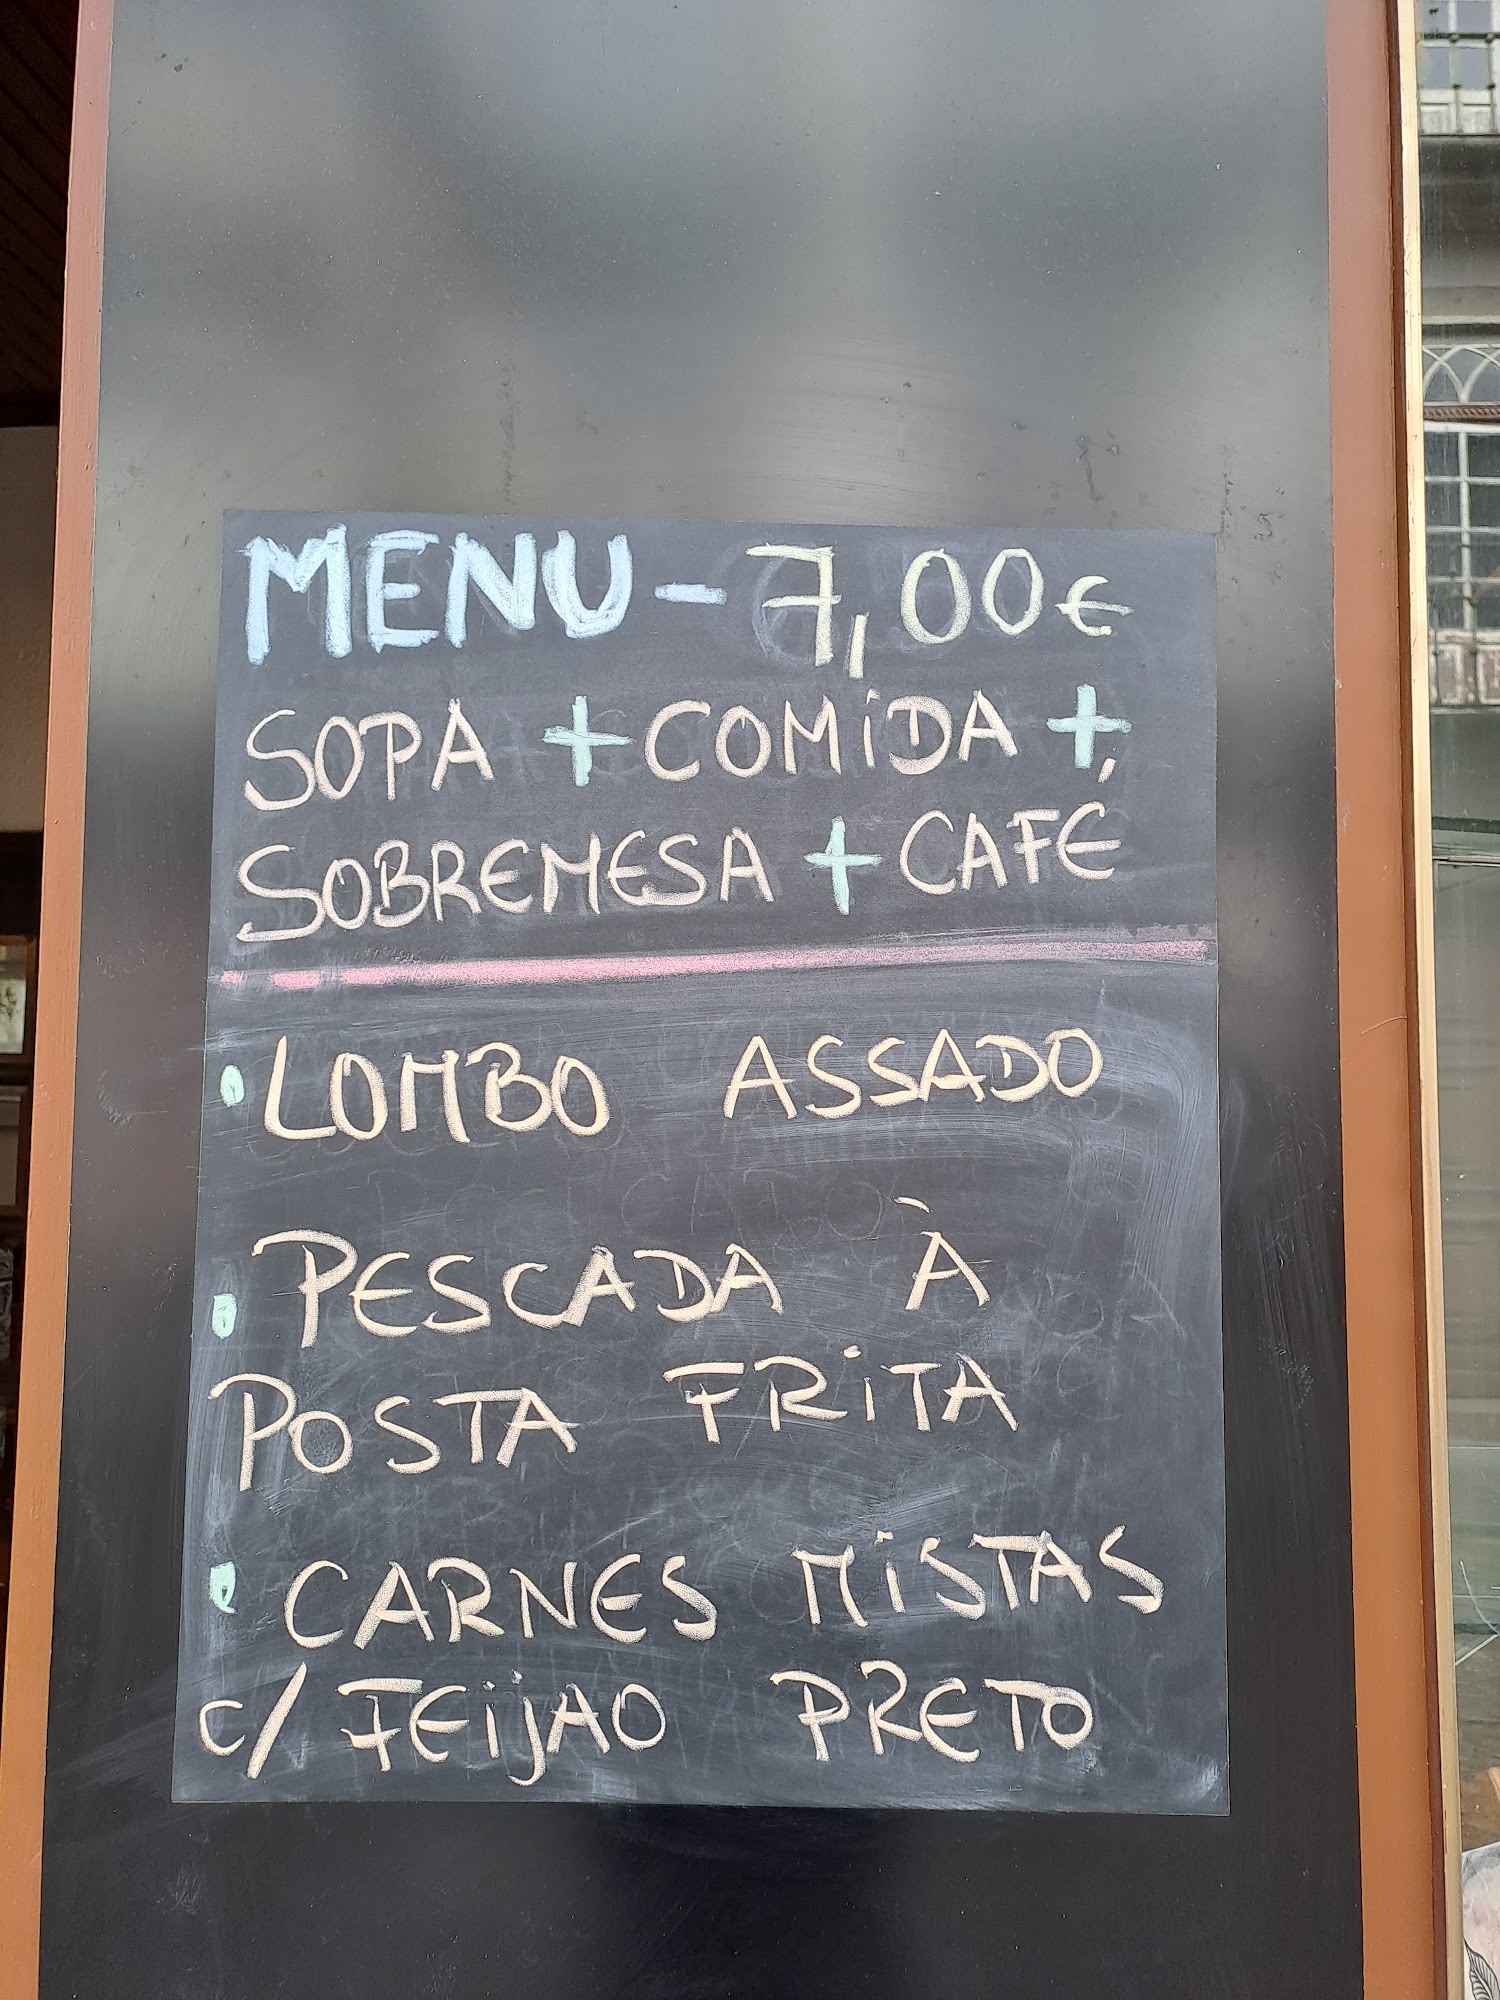 MENU - 7,00€
SOPA + COMiDA +
SOBREMESA + CAFÉ
• LOMBO ASSADO
• PESCADA À
POSTA FRiTA
• CARNES MiSTAS
c/ FEijAO PRETO